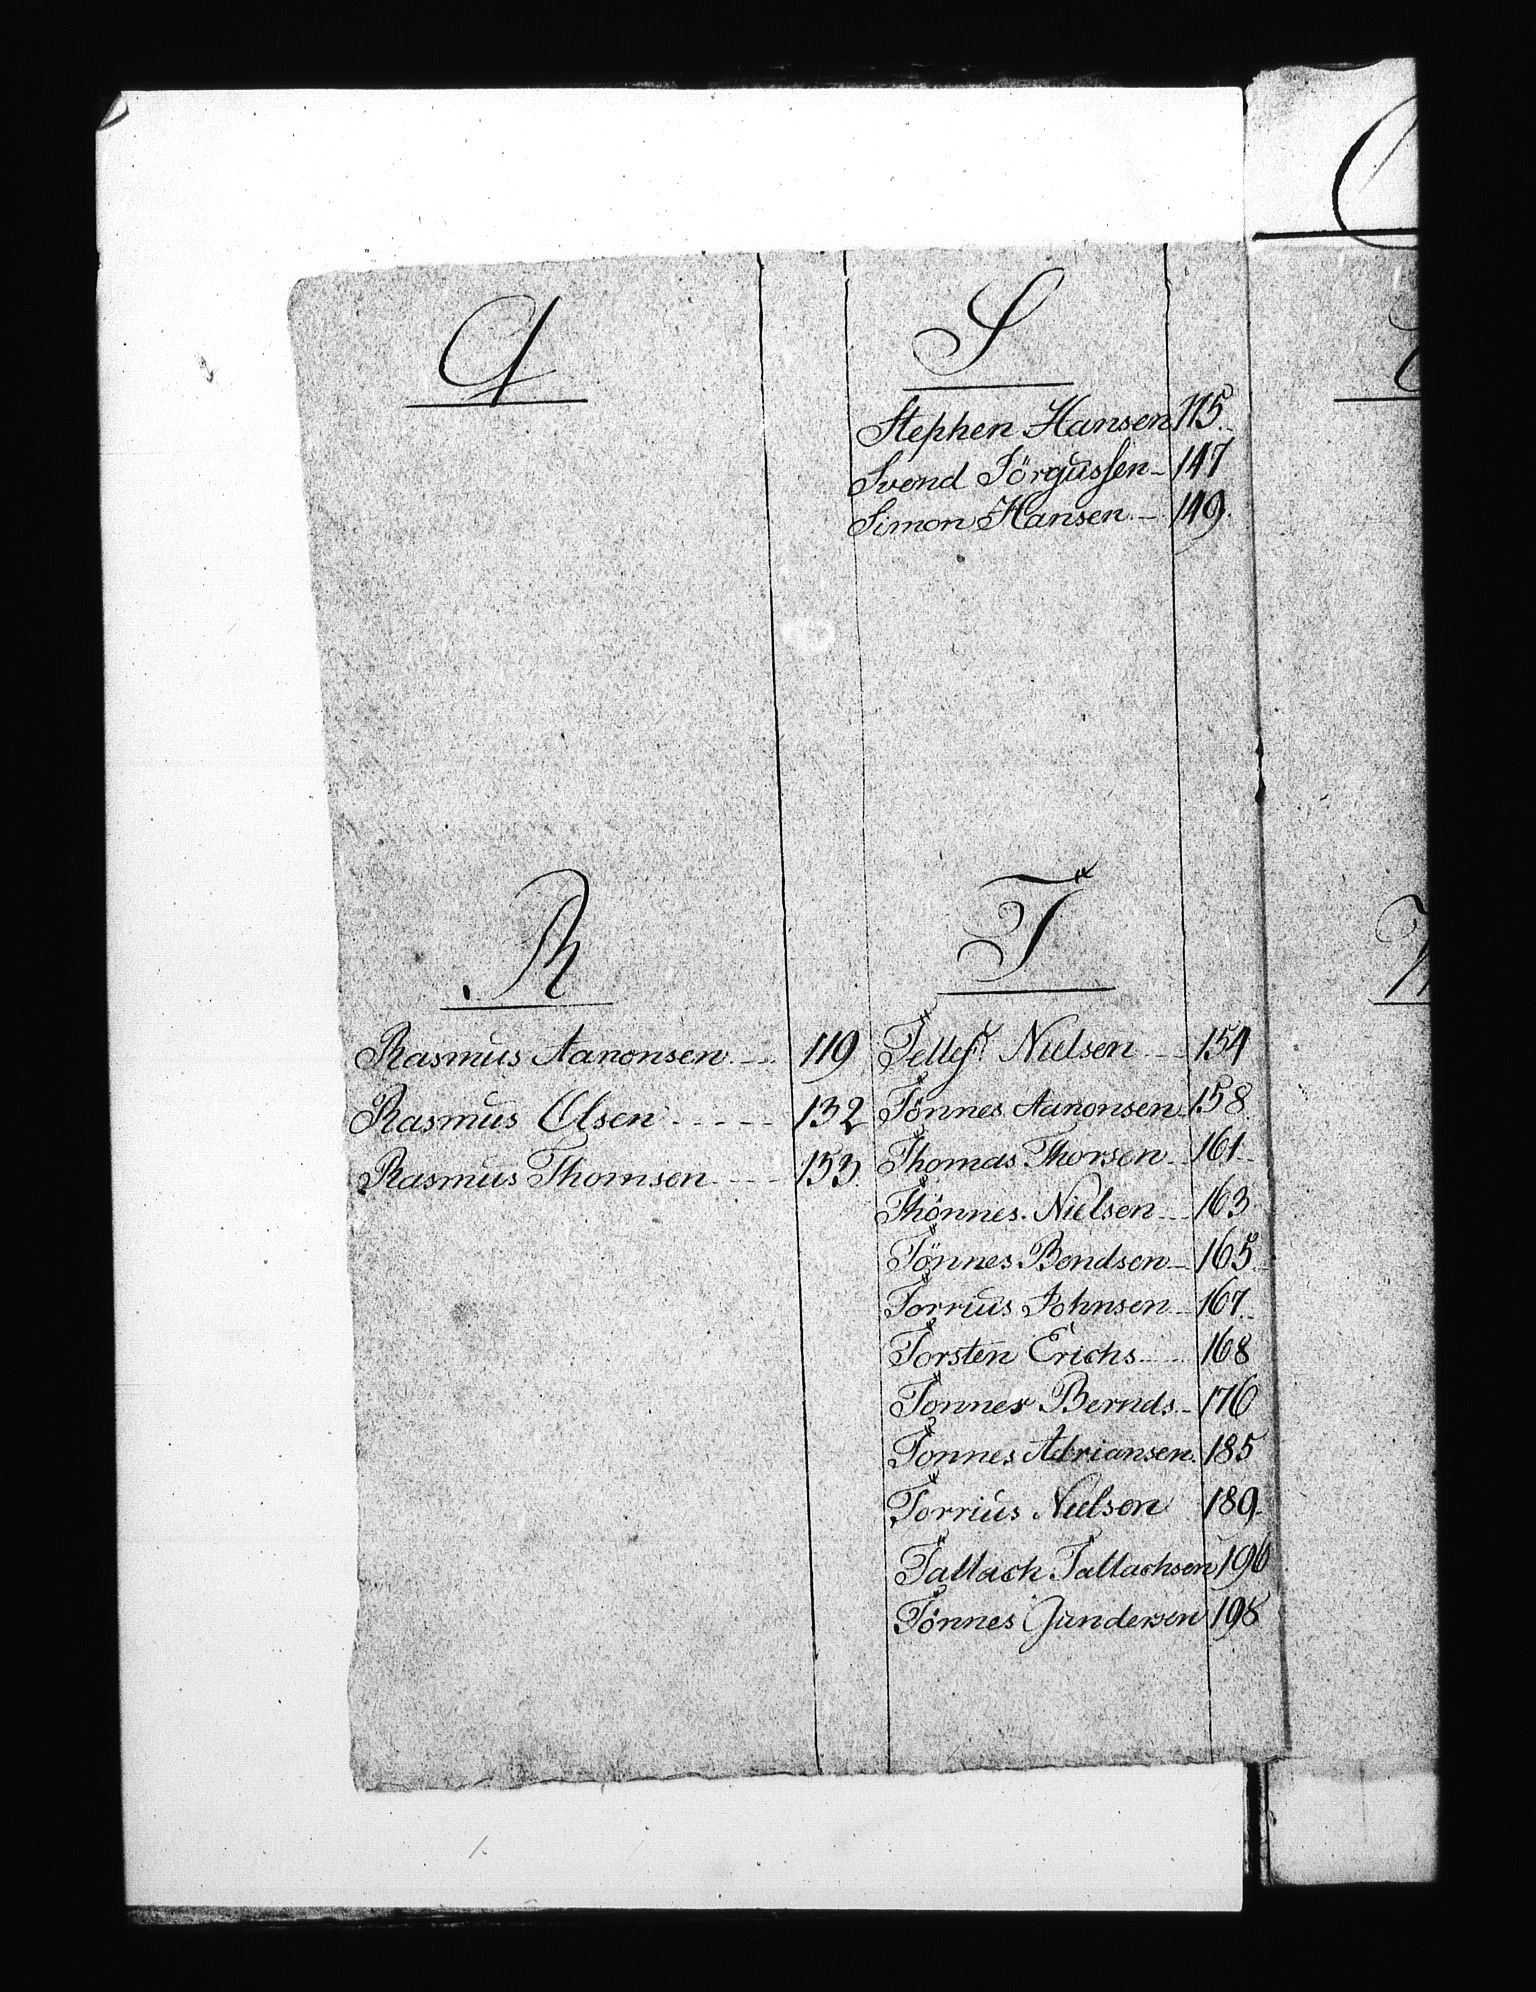 Q
R
Rasmus Aanonsen 119
Rasmus Olsen 132
Rasmus Thomsen 153
S
Stephen Hansen 115.
Svend Jörgussen 147
Simon Hansen 149.
T
Tellefs Nielsen 154
Tönnes Aanonsen 158
Thomas Thorsen 161
Thönnes Nielsen 163
Tönnes Bendsen 165
Torrius Johnsen 167
Torsten Erichs 168
Tönnes Bernds 176
Tönnes Adriansen 185
Torrius Nielsen 189.
Tallach Tallachsen 196
Tönnes Gundersen 198